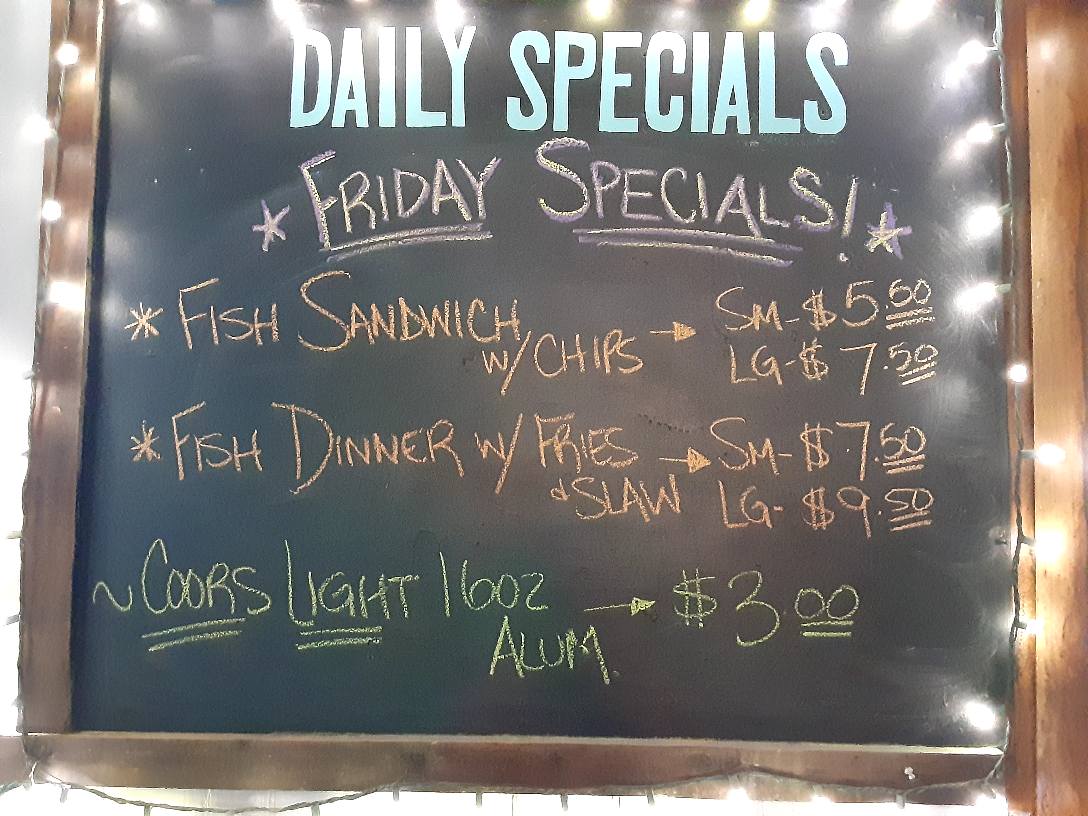 DAILY SPECIALS
* FRIDAY SPECIALS! *
* FISH SANDWICH → SM-$5.50
W/ CHIPS LG-$7.50
* FISH DINNER W/ FRIES → SM-$7.50
& SLAW LG-$9.50
~COORS LIGHT 16OZ → $3.00
ALUM.